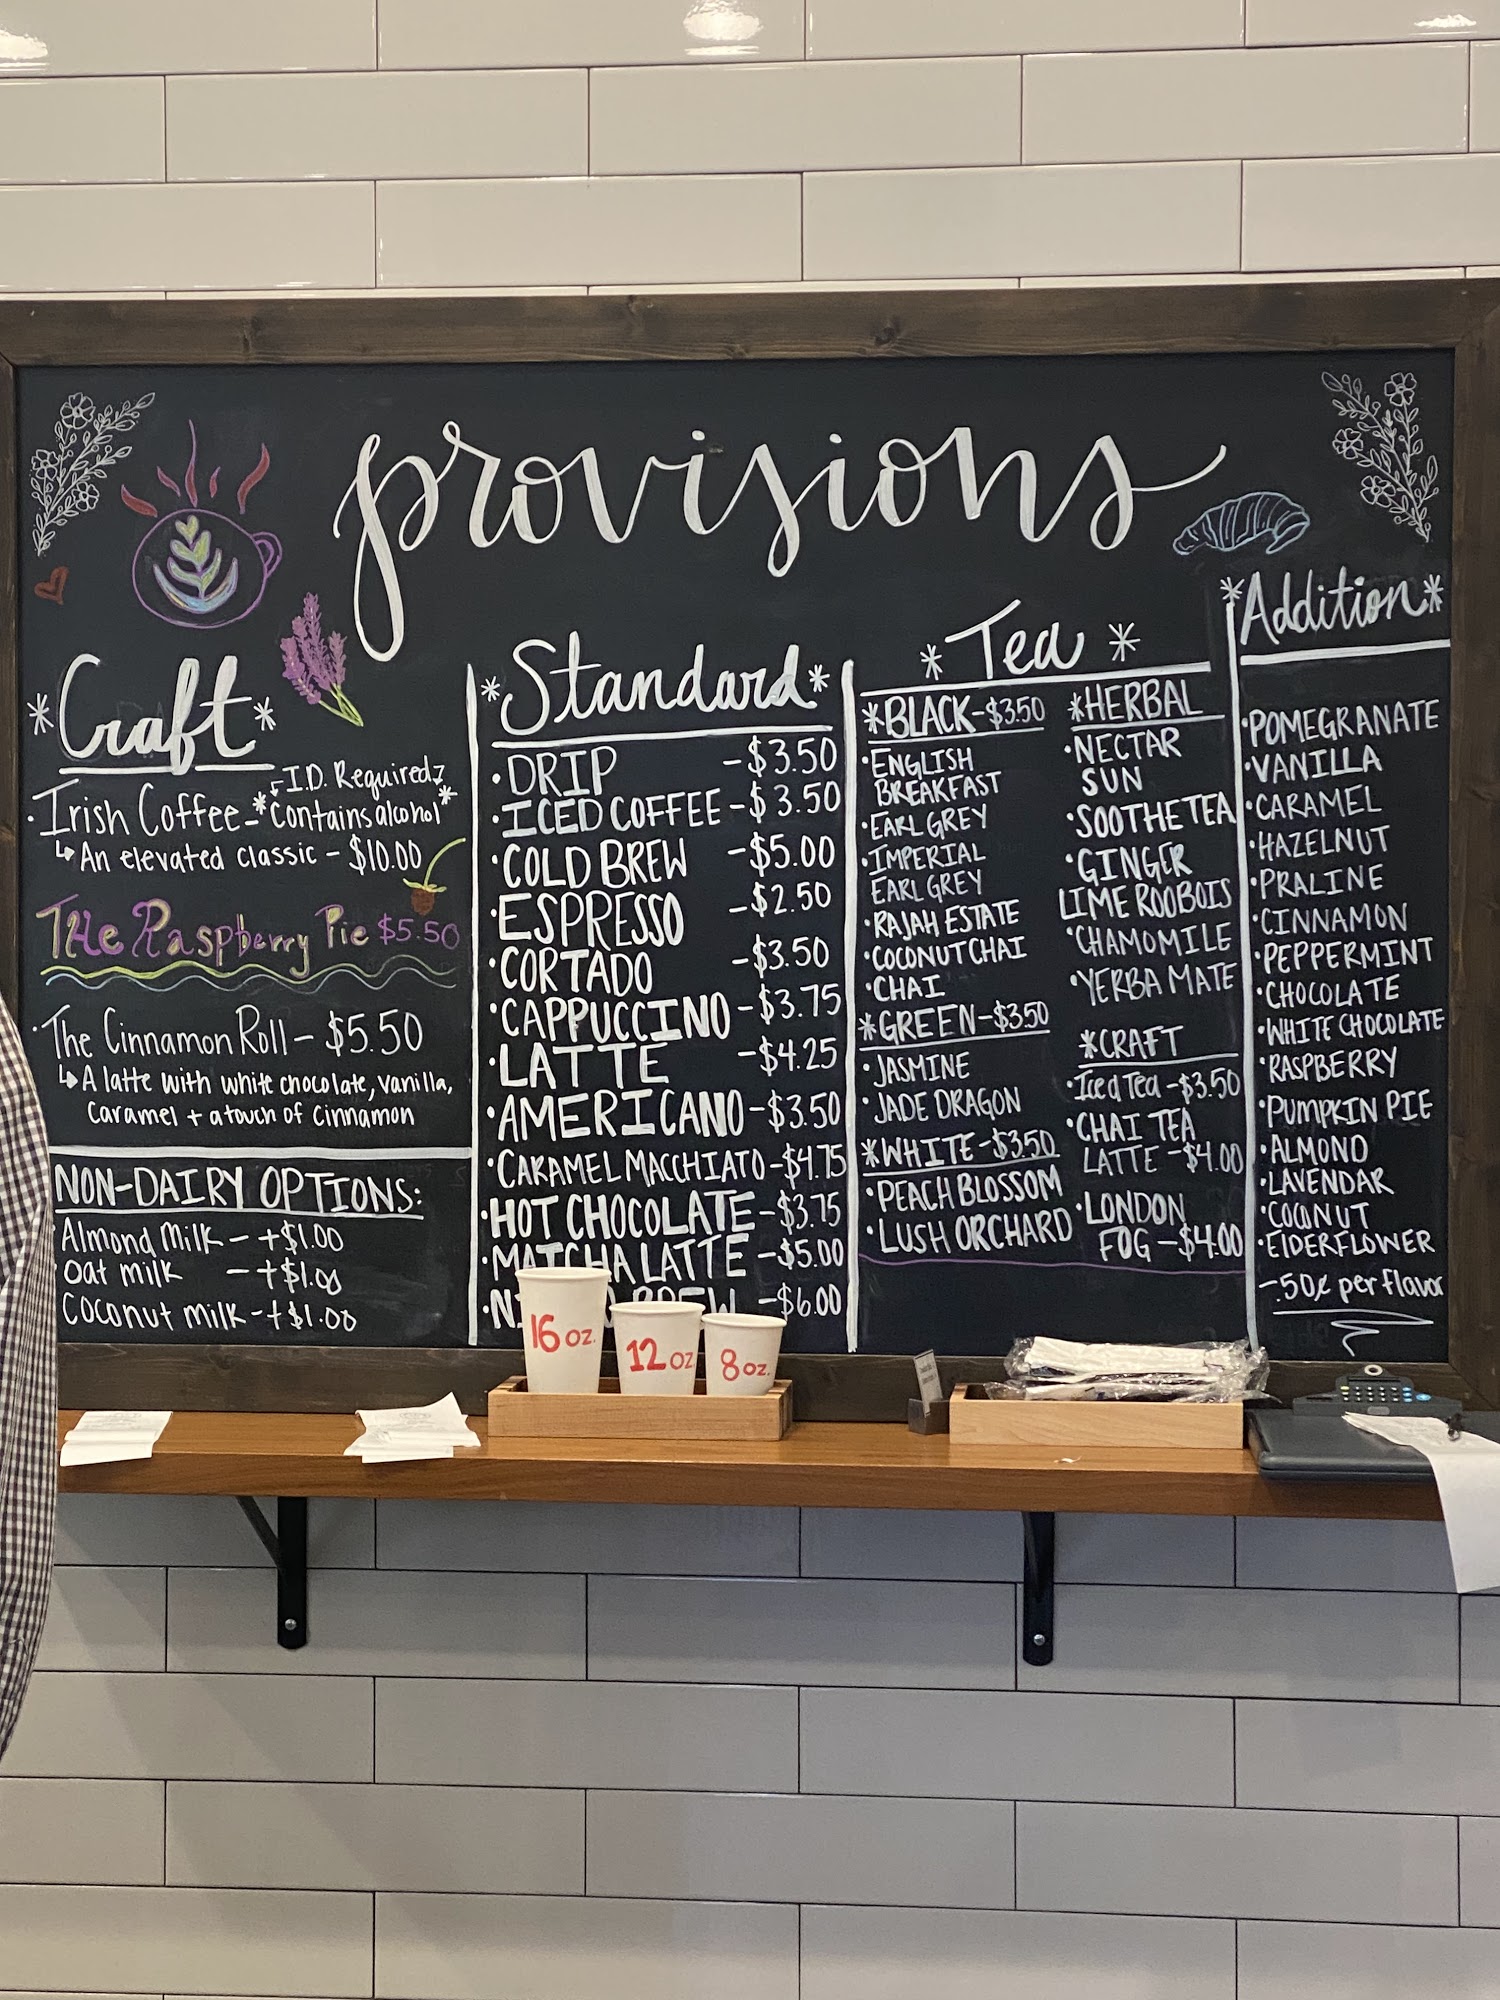 provisions
*Craft*
I.D. Required
·Irish Coffee - *Contains alcohol*
An elevated classic - $10.00
THe Raspberry Pie $5.50
·The Cinnamon Roll - $5.50
A latte with white chocolate, vanilla,
Caramel + a touch of cinnamon
NON-DAIRY OPTIONS:
Almond Milk - +$1.00
Oat milk - +$1.00
Coconut milk - +$1.00
*Standard*
·DRIP - $3.50
·ICED COFFEE - $3.50
·COLD BREW - $5.00
·ESPRESSO - $2.50
·CORTADO - $3.50
·CAPPUCCINO - $3.75
·LATTE - $4.25
·AMERICANO - $3.50
·CARAMEL MACCHIATO - $4.75
·HOT CHOCOLATE - $3.75
·MATCHA LATTE - $5.00
BREW - $6.00
*Tea*
*BLACK - $3.50
·ENGLISH
BREAKFAST
·EARL GREY
·IMPERIAL
EARL GREY
·RAJAH ESTATE
·COCONUT CHAI
·CHAI
*GREEN - $3.50
·JASMINE
·JADE DRAGON
*WHITE - $3.50
·PEACH BLOSSOM
·LUSH ORCHARD
*HERBAL
·NECTAR
SUN
·SOOTHE TEA
·GINGER
LIME ROOBOIS
·CHAMOMILE
·YERBA MATE
*CRAFT
·Iced Tea - $3.50
·CHAI TEA
LATTE - $4.00
·LONDON
FOG - $4.00
*Addition*
·POMEGRANATE
·VANILLA
·CARAMEL
·HAZELNUT
·PRALINE
·CINNAMON
·PEPPERMINT
·CHOCOLATE
·WHITE CHOCOLATE
·RASPBERRY
·PUMPKIN PIE
·ALMOND
·LAVENDAR
·COCONUT
·ElDERFLOWER
-.50¢ per flavor
16 oz.
12 oz
8 oz.